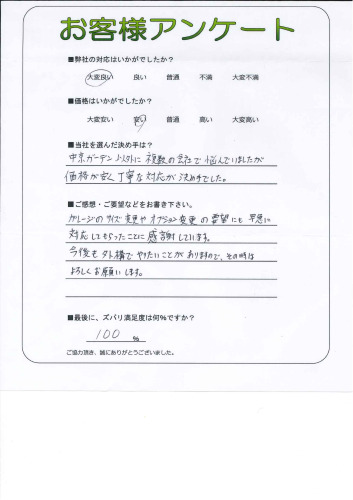 お客様アンケート
■弊社の対応はいかがでしたか?
大変良い 良い 普通 不満 大変不満
■価格はいかがですか?
大変安い 安い 普通 高い 大変高い
■当社を選んだ決め手は?
中京ガーデン 複数の会社で悩んでいましたが
価格が安く丁寧な対応が決め手でした。
■ご感想・ご要望などをお書き下さい。
ガレージのサイズ変更やオプション変更の要望にも早急に
対応してもらったことに感謝しています。
今後も外構でやりたいことがありますので、その時は
よろしくお願いします。
■最後に、ズバリ満足度は何%ですか?
100 %
ご協力頂き、誠にありがとうございました。